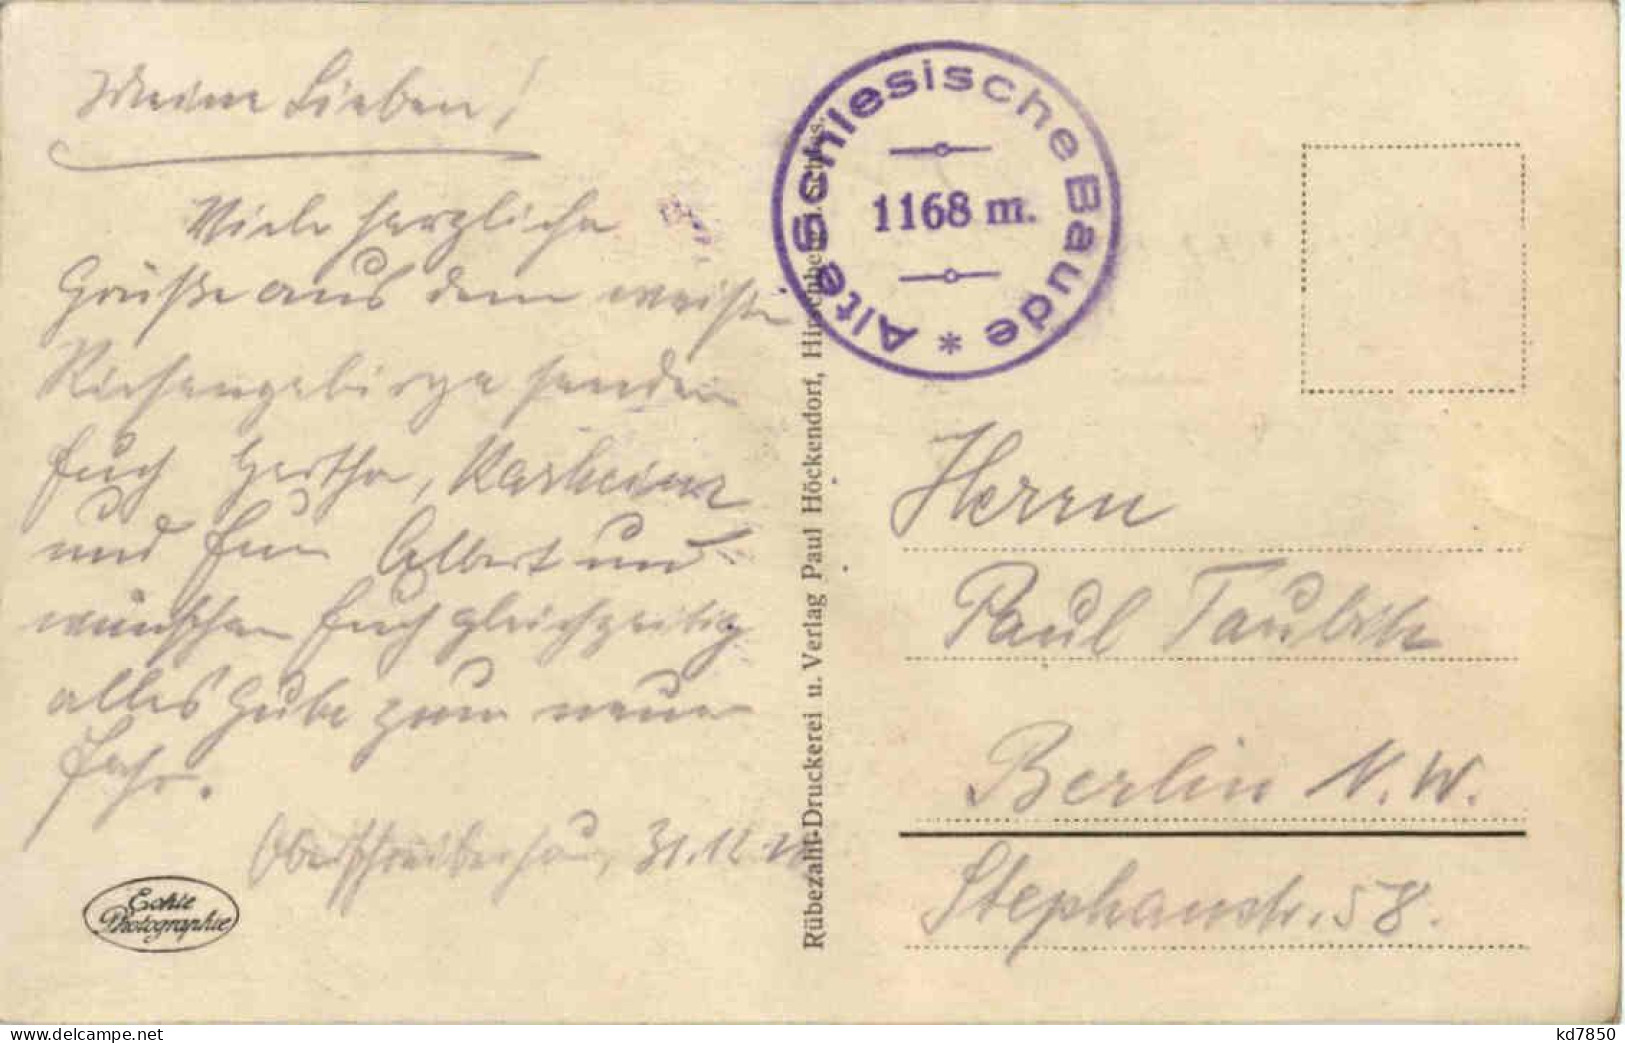 Meine Lieben!
Viele herzliche
Grüße aus dem
Riesengebirge senden
Euch Hertha, Karlheinz
und Albert und
wünschen Euch gleichzeitig
alles Gute zum neuen
Jahr.
Oberschreiberhau, 31.12.
Echte
Photographie
Rübezahl-Druckerei u. Verlag Paul Höckendorf, Hirschberg i. Schles.
Alte Schlesische Baude *
1168 m.
Herrn
Paul
Berlin N.W.
Stephanstr. 58.
kd7850